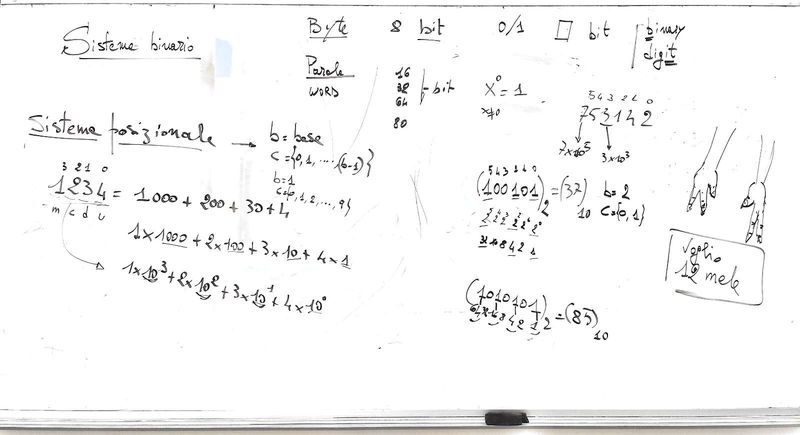 Sistema binario
Byte 8 bit 0/1 □ bit binary
digit
Parola 16
WORD 32 bit
64
80
x⁰ = 1
x≠0
5 4 3 2 1 0
753142
7×10⁵ 3×10³
Sistema posizionale → b = base
c = {0, 1, ...., (b-1)}
b=1
c={0, 1, 2, ..., 9}
3 2 1 0
1234 = 1000 + 200 + 30 + 4
m c d u
1×1000 + 2×100 + 3×10 + 4×1
1×10³ + 2×10² + 3×10¹ + 4×10⁰
5 4 3 2 1 0
(100101)₂ = (37)₁₀ b = 2
c={0,1}
2⁵ 2⁴ 2³ 2² 2¹ 2⁰
32 16 8 4 2 1
(1010101)₂ = (85)₁₀
64 32 16 8 4 2 1
voglio
12 mele